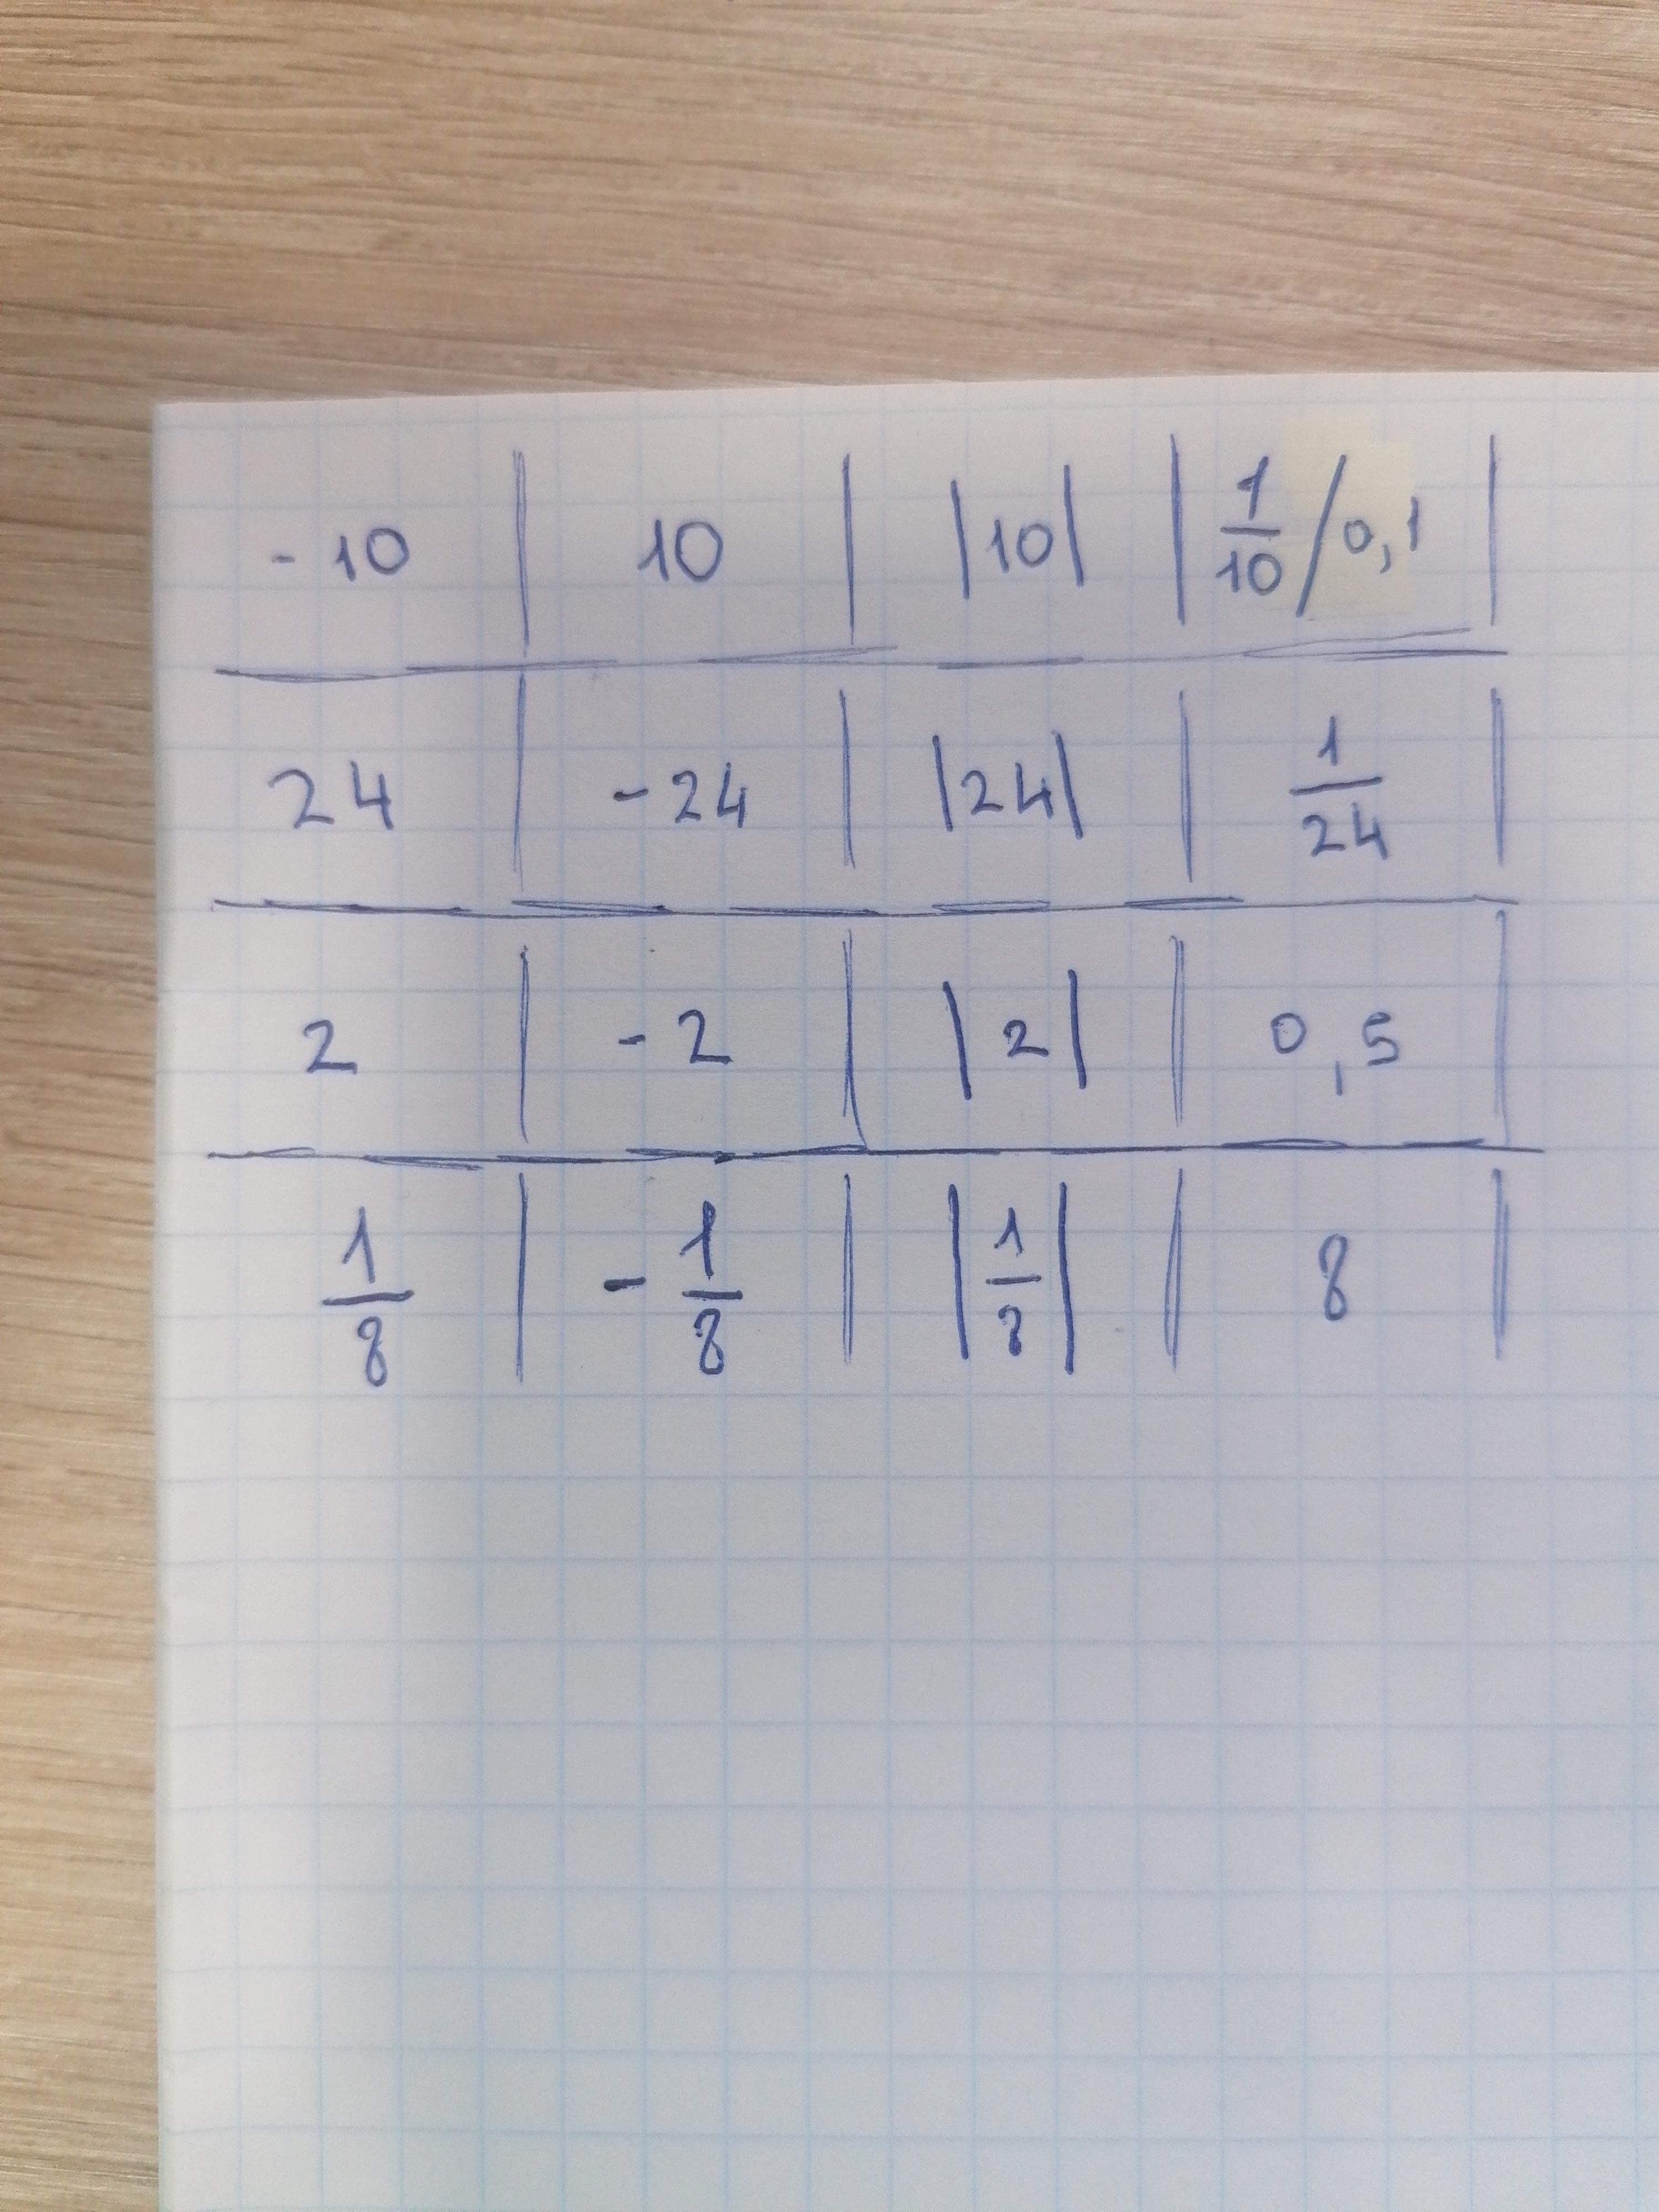 -10 | 10 | |10| | 1/10 / 0,1 |
24 | -24 | |24| | 1/24 |
2 | -2 | |2| | 0,5 |
1/8 | -1/8 | |1/8| | 8 |